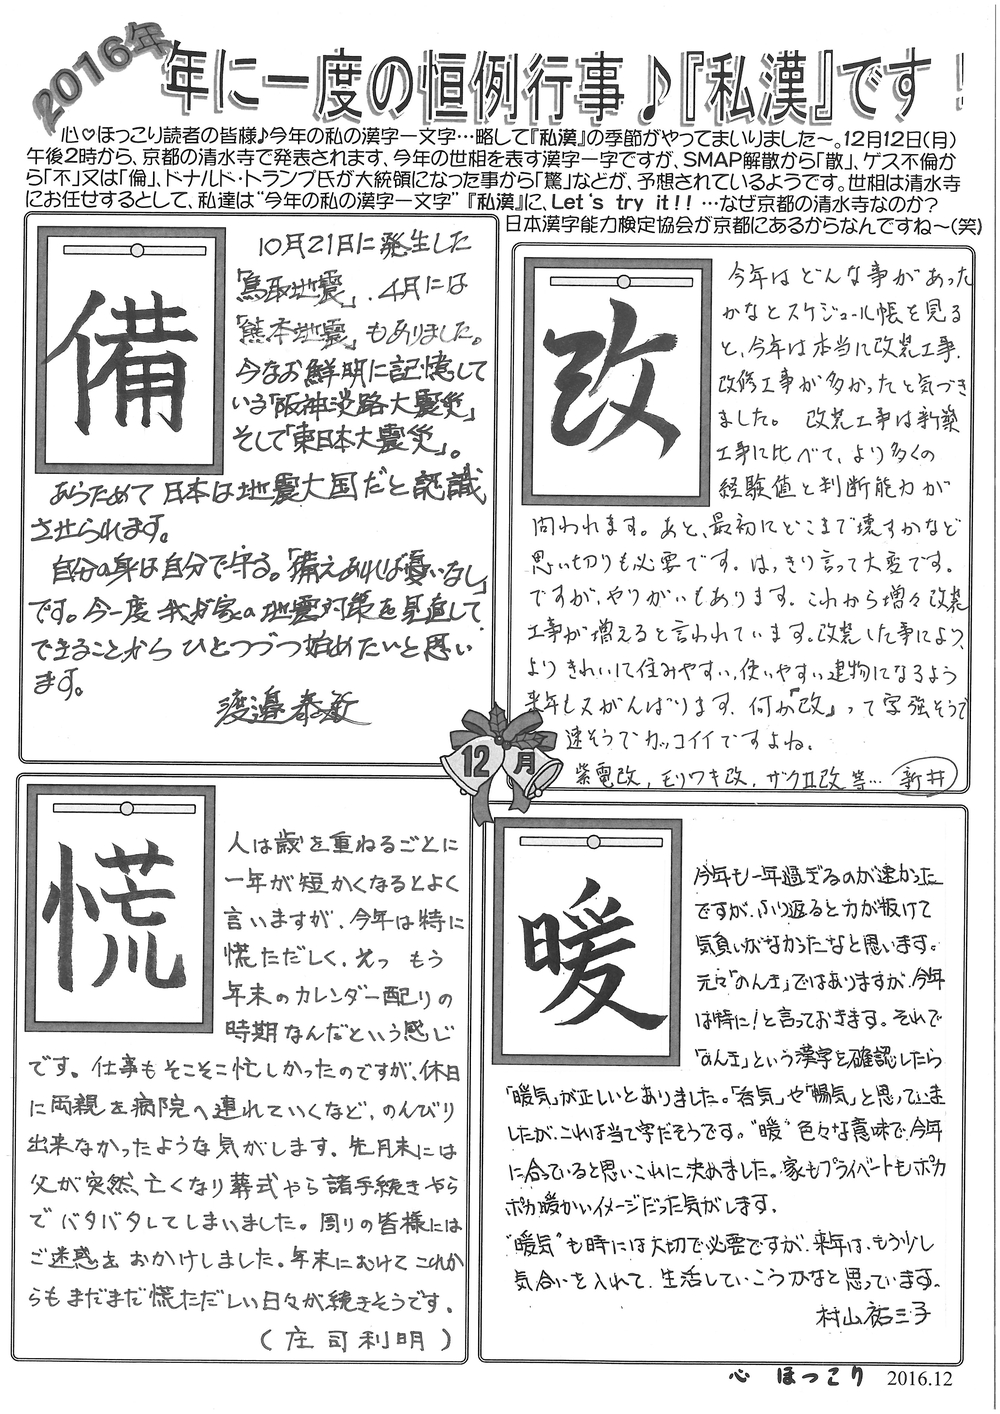 2016年
年に一度の恒例行事♪『私漢』です！
心♡ほっこり読者の皆様♪今年の私の漢字一文字…略して『私漢』の季節がやってまいりました～。12月12日(月)
午後2時から、京都の清水寺で発表されます、今年の世相を表す漢字一字ですが、SMAP解散から「散」、ゲス不倫か
ら「不」又は「倫」、ドナルド・トランプ氏が大統領になった事から「驚」などが、予想されているようです。世相は清水寺
にお任せするとして、私達は“今年の私の漢字一文字”『私漢』に、Let's try it!! …なぜ京都の清水寺なのか?
日本漢字能力検定協会が京都にあるからなんですね～(笑)
備
10月21日に発生した
「鳥取地震」、4月には
「熊本地震」もありました。
今なお鮮明に記憶して
いる「阪神淡路大震災」
そして「東日本大震災」。
あらためて日本は地震大国だと認識
させられます。
自分の身は自分で守る。「備えあれば憂いなし」
です。今一度我が家の地震対策を見直して
できることからひとつづつ始めたいと思い
ます。
渡邉泰敏
改
今年はどんな事があった
かなとスケジュール帳を見る
と、今年は本当に改装工事、
改修工事が多かったと気づき
ました。 改装工事は新築
工事に比べて、より多くの
経験値と判断能力が
問われます。あと、最初にどこまで壊すかなど
思い切りも必要です。はっきり言って大変です。
ですが、やりがいもあります。これから増々改装
工事が増えると言われています。改装した事により、
よりきれいに住みやすい、使いやすい建物になるよう
来年もスがんばります。何か『改』って字強そうで
速そうでカッコイイですよね。
紫電改，モリワキ改，ザクⅡ改 等… 新井
12月
慌
人は歳を重ねるごとに
一年が短かくなるとよく
言いますが、今年は特に
慌ただしく、えっ もう
年末のカレンダー配りの
時期なんだという感じ
です。仕事もそこそこ忙しかったのですが、休日
に両親を病院へ連れていくなど、のんびり
出来なかったような気がします。先月末には
父が突然、亡くなり葬式やら諸手続きやら
でバタバタしてしまいました。周りの皆様には
ご迷惑をおかけしました。年末にむけてこれか
らもまだまだ慌ただしい日々が続きそうです。
(庄司利明)
暖
今年も一年過ぎるのが速かった
ですが、ふり返ると力が抜けて
気負いがなかったなと思います。
元々「のんき」ではありますが、今年
は特に!と言っておきます。それで
「のんき」という漢字を確認したら
「暖気」が正しいとありました。「呑気」や「暢気」と思っていま
したが、これは当て字だそうです。“暖”色々な意味で、今年
に合っていると思いこれに決めました。家もプライベートもポカ
ポカ暖かいイメージだった気がします。
“暖気”も時には大切で必要ですが、来年は、もう少し
気合いを入れて、生活していこうかなと思っています。
村山祐三子
心 ほっこり 2016.12